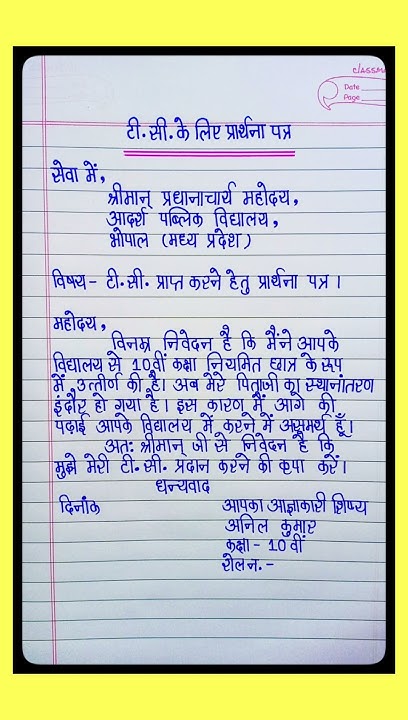 classma
Date
Page
टी.सी. के लिए प्रार्थना पत्र
सेवा में,
श्रीमान् प्रधानाचार्य महोदय,
आदर्श पब्लिक विद्यालय,
भोपाल (मध्य प्रदेश)
विषय- टी.सी. प्राप्त करने हेतु प्रार्थना पत्र ।
महोदय,
विनम्र निवेदन है कि मैंने आपके
विद्यालय से 10वीं कक्षा नियमित छात्र के रूप
में उत्तीर्ण की है। अब मेरे पिताजी का स्थानांतरण
इंदौर हो गया है। इस कारण मैं आगे की
पढ़ाई आपके विद्यालय में करने में असमर्थ हूँ।
अतः श्रीमान् जी से निवेदन है कि
मुझे मेरी टी.सी. प्रदान करने की कृपा करें।
धन्यवाद
दिनांक आपका आज्ञाकारी शिष्य
अनिल कुमार
कक्षा - 10वीं
रोल न.-